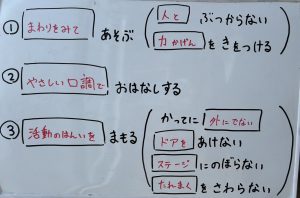 ① まわりをみて あそぶ
人と ぶつからない
力かげん をきをつける
② やさしい口調で おはなしする
③ 活動のはんいを まもる
かってに 外にでない
ドアを あけない
ステージ にのぼらない
たれまく をさわらない